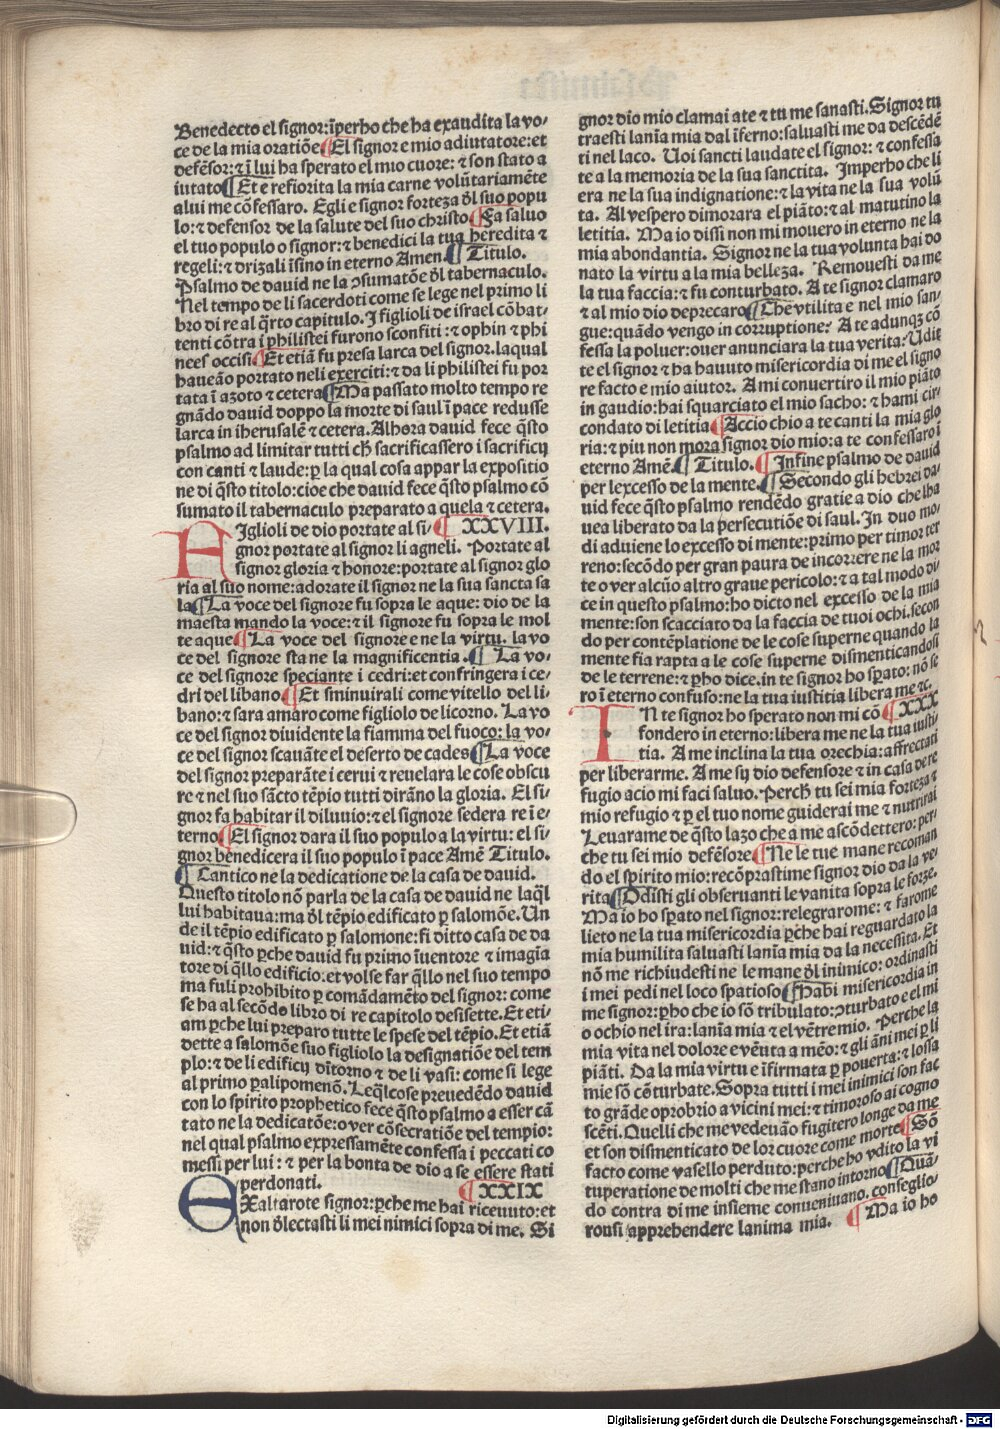 Benedecto el signor:īperho che ha exaudita la vo-
ce de la mia oratiōe ¶El signor e mio adiutatore:et
defēsor:⁊ ī lui ha sperato el mio cuore: ⁊ son stato a
iutato ¶Et e refiorita la mia carne volūtariamēte
a lui me cōfessaro. Egli e signor forteza dl suo popu
lo:⁊ defensor de la salute del suo christo. ¶Fa saluo
el tuo populo o signor:⁊ benedici la tua heredita ⁊
regeli:⁊ drizali īsino in eterno Amen. ¶ Titulo.
Psalmo de dauid ne la ꝯsumatōe dl tabernaculo.
Nel tempo de li sacerdoti come se lege nel primo li
bro di re al q̄rto capitulo. I figlioli de israel cōbat-
tenti cōtra i philistei furono sconfiti:⁊ ophin ⁊ phi
nees occisi. ¶Et etiā fu presa larca del signor.laqual
haueāo portato neli exerciti:⁊ da li philistei fu por
tata ī azoto ⁊ cetera ¶Ma passato molto tempo re
gnādo dauid doppo la morte di saul ī pace redusse
larca in iherusalē ⁊ cetera. Alhora dauid fece q̄sto
psalmo ad limitar tutti ch̄ sacrificassero i sacrificij
con canti ⁊ laude:ꝑ la qual cosa appar la expositio
ne di q̄sto titolo:cioe che dauid fece q̄sto psalmo cō
sumato il tabernaculo preparato a quela ⁊ cetera.
AIglioli de dio portate al si- ¶ XXVIII.
gnor portate al signor li agneli. Portate al
signor gloria ⁊ honore:portate al signor glo
ria al suo nome:adorate il signor ne la sua sancta sa
la ¶La voce del signore fu sopra le aque: dio de la
maesta mando la voce:⁊ il signore fu sopra le mol
te aque ¶La voce del signore e ne la virtu. la vo
ce del signore sta ne la magnificentia. ¶ La vo-
ce del signore speciante i cedri:et confringera i ce-
dri del libano ¶Et sminuirali come vitello del li-
bano:⁊ sara amaro come figliolo de licorno. La vo
ce del signor diuidente la fiamma del fuoco: la vo-
ce del signor scauāte el deserto de cades ¶La voce
del signor preparāte i cerui ⁊ reuelara le cose obscu
re ⁊ nel suo sācto tēpio tutti dirāno la gloria. El si-
gnor fa habitar il diluuio:⁊ el signore sedera re ī e-
terno. ¶El signor dara il suo populo a la virtu: el si-
gnor benedicera il suo populo ī pace Amē Titulo.
¶ Cantico ne la dedicatione de la casa de dauid.
Questo titolo nō parla de la casa de dauid ne laq̄l
lui habitaua:ma dl tēpio edificato ꝑ salomōe. Un
de il tēpio edificato ꝑ salomone:fi ditto casa de da
uid:⁊ q̄sto ꝑche dauid fu primo īuentore ⁊ imagia
tore di q̄llo edificio:et volse far q̄llo nel suo tempo
ma fuli prohibito ꝑ comādamēto del signor: come
se ha al secōdo libro di re capitolo desisette. Et eti-
am ꝑche lui preparo tutte le spese del tēpio. Et etiā
dette a salomōe suo figliolo la designatiōe del tem
plo:⁊ de li edificij dītorno ⁊ de li vasi: come si lege
al primo ꝑalipomenō. Leq̄lcose preuedēdo dauid
con lo spirito prophetico fece q̄sto psalmo a esser cā
tato ne la dedicatōe:o ver cōsecratiōe del tempio:
nel qual psalmo expressamēte confessa i peccati co
messi per lui: ⁊ per la bonta de dio a se essere stati
perdonati. ¶ XXIX
EXaltarote signor:ꝑche me hai riceuuto:et
non dlectasti li mei nimici sopra di me. Si
gnor dio mio clamai a te ⁊ tu me sanasti. Signor tu
traesti lanīa mia dal īferno:saluasti me da descēdē
ti nel laco. Uoi sancti laudate el signor: ⁊ confessa
te a la memoria de la sua sanctita. Imperho che li
era ne la sua indignatione:⁊ la vita ne la sua volū
ta. Al vespero dimorara el piāto:⁊ al matutino la
letitia. Ma io dissi non mi mouero in eterno ne la
mia abondantia. Signor ne la tua volunta hai do
nato la virtu a la mia belleza. Remouesti da me
la tua faccia:⁊ fu conturbato. A te signor clamaro
⁊ al mio dio deprecaro ¶Che vtilita e nel mio san-
gue:quādo vengo in corruptione? A te adunqz cō
fessa la poluer:ouer anunciara la tua verita:Udit
te el signor ⁊ ha hauuto misericordia di me el signo
re facto e mio aiutor. A mi conuertiro il mio piāto
in gaudio:hai squarciato el mio sacho:⁊ hami cir-
condato di letitia ¶Accio chio a te canti la mia glo
ria:⁊ piu non mora signor dio mio:a te confessaro ī
eterno Amē. ¶ Titulo. ¶Infine psalmo de dauid
per lexcesso de la mente. ¶Secondo gli hebrei da-
uid fece q̄sto psalmo rendēdo gratie a dio che lha
uea liberato da la persecutiōe di saul. In duo mo-
di aduiene lo excesso di mente:primo per timor ter
reno:secōdo per gran paura de incorrere ne la mor
te o ver alcūo altro graue pericolo:⁊ a tal modo di-
ce in questo psalmo:ho dicto nel excesso de la mia
mente:son scacciato da la faccia de tuoi ochi.secon
do per contēplatione de le cose superne quando la
mente fia rapta a le cose superne dismenticandosi
de le terrene:⁊ ꝑho dice.in te signor ho sꝑato: nō se
ro ī eterno confuso:ne la tua iustitia libera me ⁊c.
IN te signor ho sperato non mi cō ¶XXX
fondero in eterno:libera me ne la tua iusti-
tia. A me inclina la tua orechia:affrectati
per liberarme. A me sij dio defensore ⁊ in casa de re
fugio acio mi faci saluo. Perch̄ tu sei mia forteza ⁊
mio refugio ⁊ ꝑ el tuo nome guiderai me ⁊ nutrirai
Leuarame de q̄sto lazo che a me ascōdettero: per-
che tu sei mio defēsore ¶Ne le tue mane recoman
do el spirito mio:recōprastime signor dio da la ve-
rita ¶Odisti gli obseruanti le vanita sopra le forze.
Ma io ho sꝑato nel signor:relegrarome: ⁊ farome
lieto ne la tua misericordia ꝑche hai reguardato la
mia humilita saluasti lanīa mia da la necessita. Et
nō me richiudesti ne le mane dl inimico: ordinasti
i mei pedi nel loco spatioso ¶Habi misericordia in
me signor:ꝑho che io sō tribulato:ꝯturbato e el mi
o ochio nel ira:lanīa mia ⁊ el vētre mio. Perche la
mia vita nel dolore e vēuta a mēo:⁊ gli āni mei ꝑ li
piāti. Da la mia virtu e īfirmata ꝑ pouerta:⁊ lossa
mie sō cōturbate. Sopra tutti i mei inimici son fac
to grāde oprobrio a vicini mei:⁊ timoroso ai cogno
scēti. Quelli che me vedeuāo fugitero longe da me
et son dismenticato de lor cuore come morto ¶Sō
facto come vasello perduto:perche ho vdito la vi
tuperatione de molti che me stano intorno ¶Quā-
do contra di me insieme conueniuano. conseglio
rousi apprehendere lanima mia. ¶Ma io ho
Digitalisierung gefördert durch die Deutsche Forschungsgemeinschaft - DFG